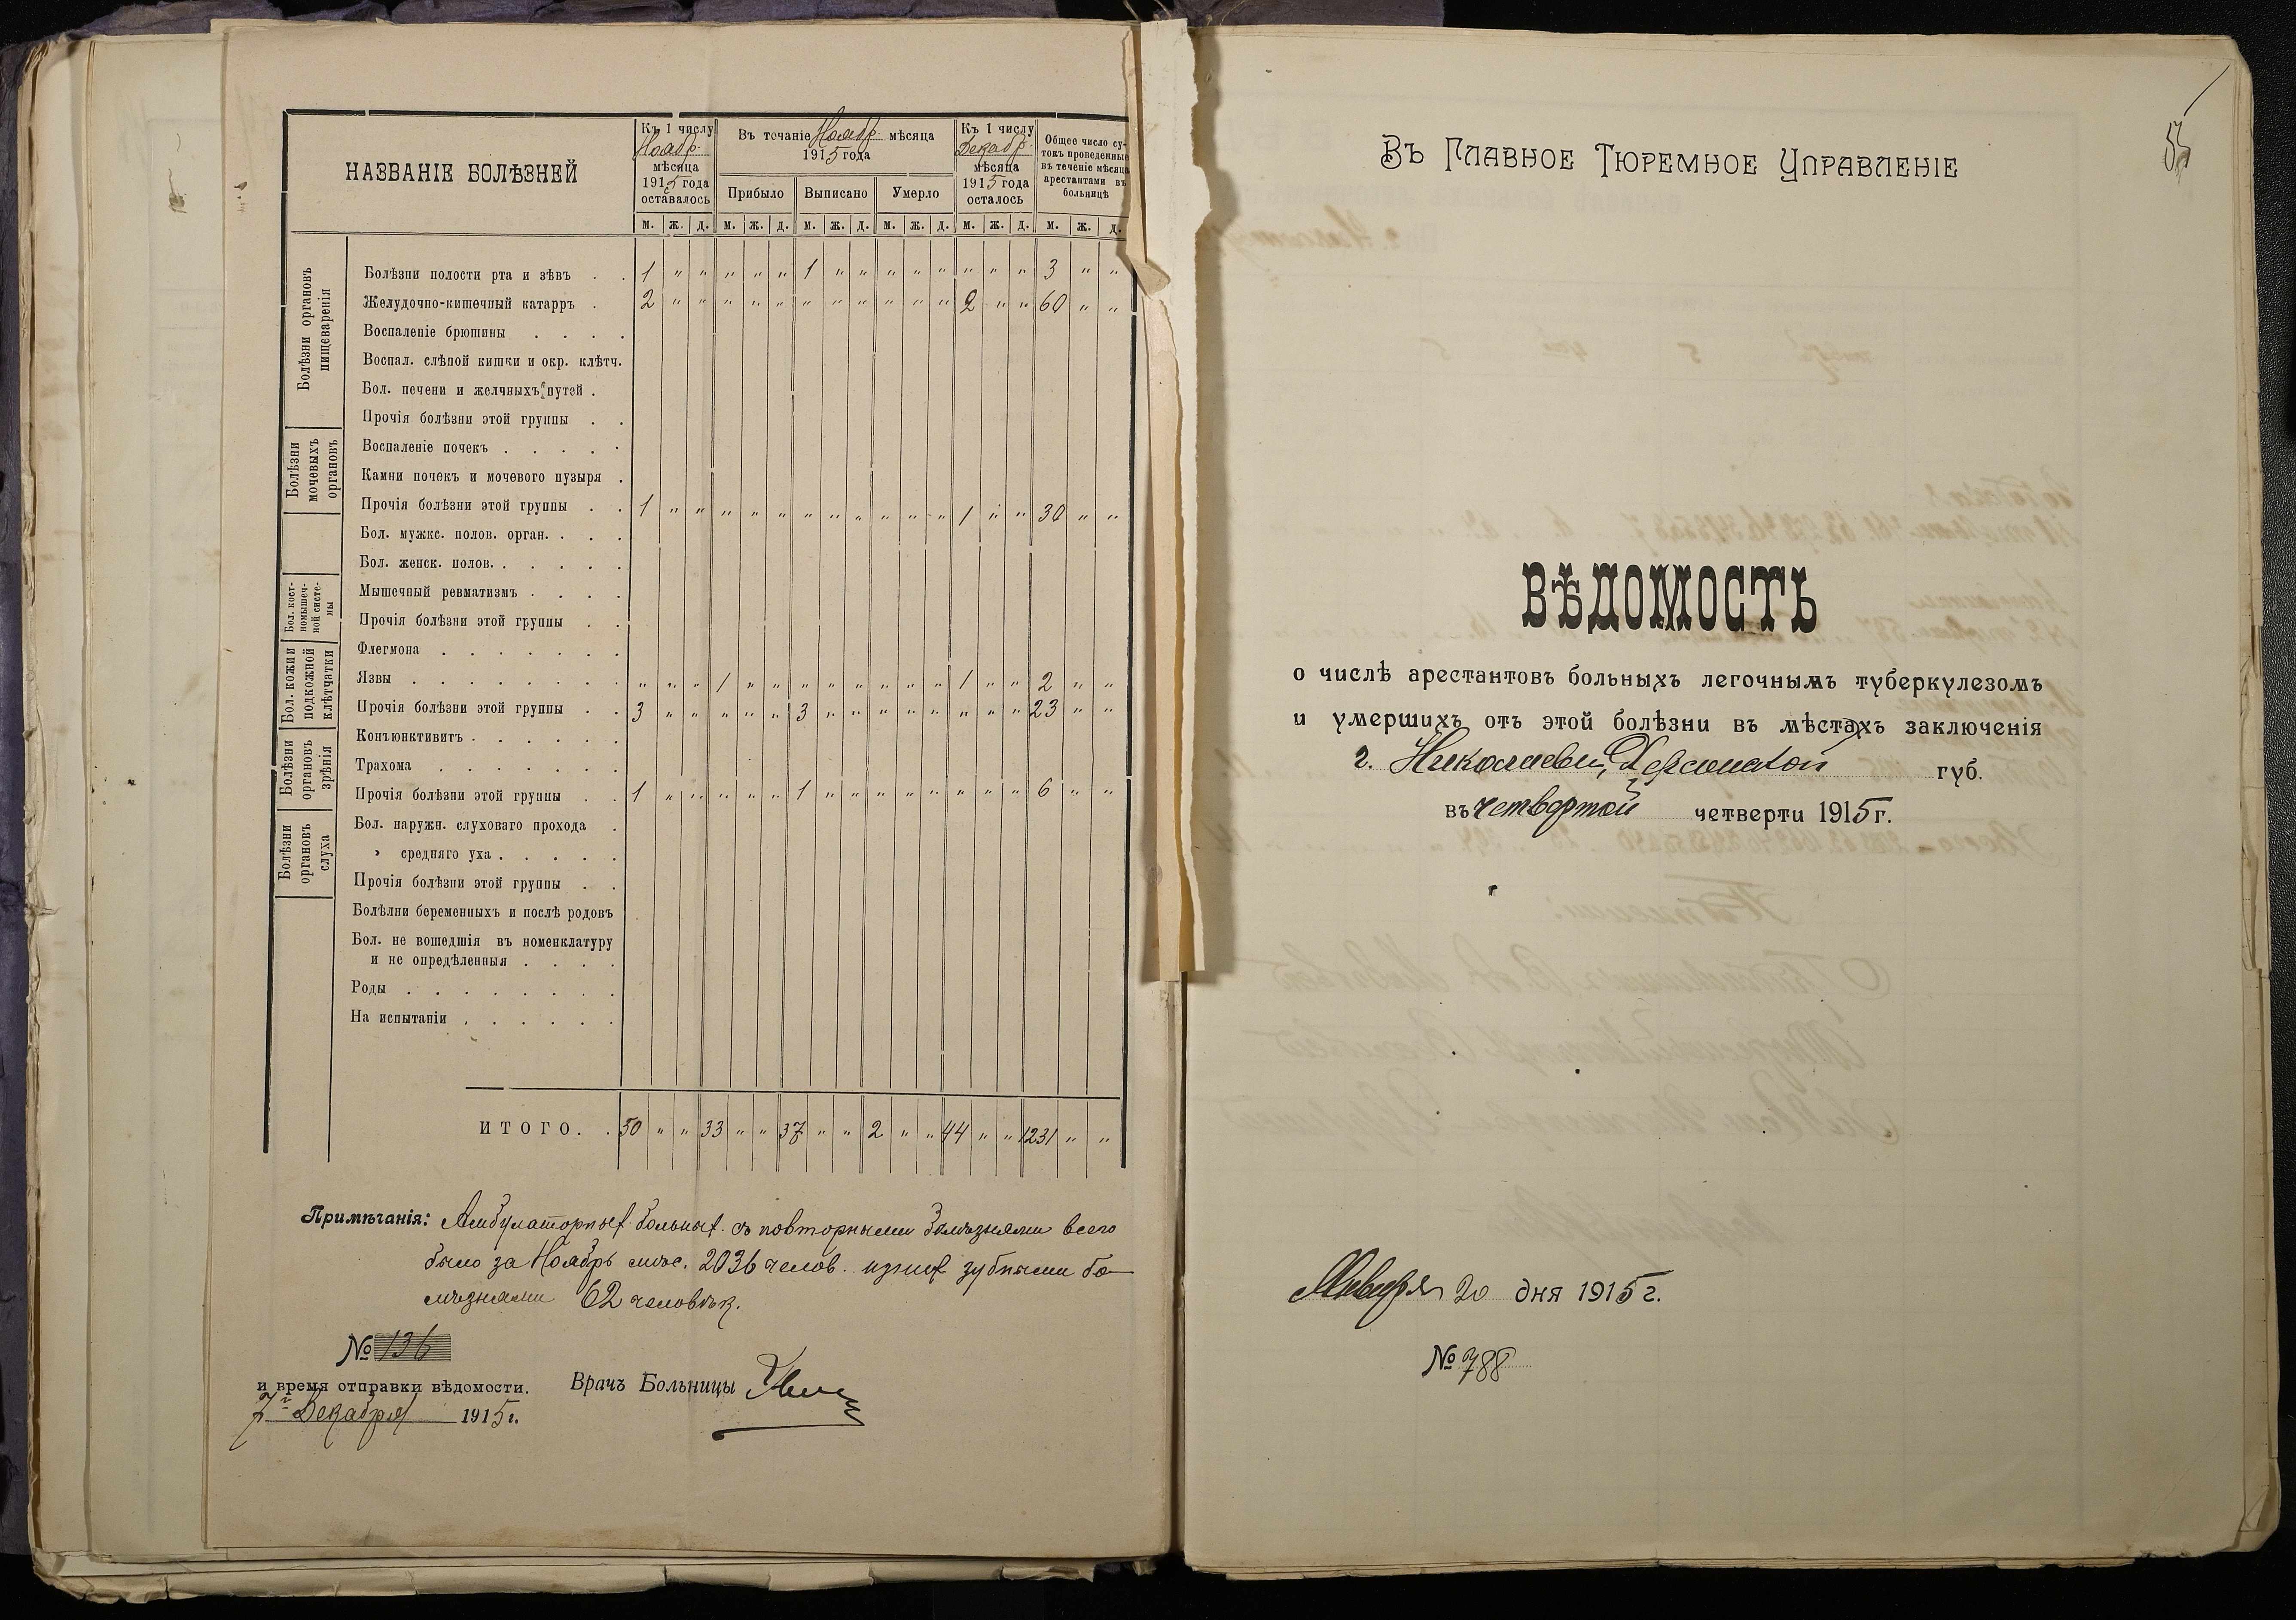 НАЗВАНІЕ БОЛѢЗНЕЙ
Къ 1 числу Ноябр. мѣсяца 1915 года оставалось
Въ течаніе Ноябр. мѣсяца 1915 года
Прибыло Выписано Умерло
Къ 1 числу Декабр. мѣсяца 1915 года осталось
Общее число сутокъ проведенные въ теченіе мѣсяца арестантами въ больницѣ
м. ж. д. м. ж. д. м. ж. д. м. ж. д. м. ж. д. м. ж. д.
Болѣзни органовъ пищеваренія
Болѣзни полости рта и зѣвъ . . 1 " " " " " 1 " " " " " " " " 3 " "
Желудочно-кишечный катарръ . 2 " " " " " " " " " " " 2 " " 60 " "
Воспаленіе брюшины . . . .
Воспал. слѣпой кишки и окр. клѣтч.
Бол. печени и желчныхъ путей .
Прочія болѣзни этой группы . .
Болѣзни мочевыхъ органовъ
Воспаленіе почекъ . . . . .
Камни почекъ и мочевого пузыря .
Прочія болѣзни этой группы . . 1 " " " " " " " " " " " 1 " " 30 " "
Бол. мужс. полов. орган. . . .
Бол. женск. полов. . . . . .
Бол. костномышечной системы
Мышечный ревматизмъ . . . .
Прочія болѣзни этой группы . .
Бол. кожи и подкожной клѣтчатки
Флегмона . . . . . . .
Язвы . . . . . . . . " " " 1 " " " " " " " " 1 " " 2 " "
Прочія болѣзни этой группы . . 3 " " " " " 3 " " " " " " " " 23 " "
Болѣзни органовъ зрѣнія
Конъюнктивитъ . . . . . .
Трахома . . . . . . .
Прочія болѣзни этой группы . . 1 " " " " " 1 " " " " " " " " 6 " "
Болѣзни органовъ слуха
Бол. наружн. слуховаго прохода .
" средняго уха . . . . .
Прочія болѣзни этой группы . .
Болѣлни беременныхъ и послѣ родовъ
Бол. не вошедшія въ номенклатуру
и не опредѣленныя . . . .
Роды . . . . . . . .
На испытаніи . . . . . .
ИТОГО. . 50 " " 33 " " 37 " " 2 " " 44 " " 1231 " "
Примѣчанія: Амбулаторныхъ больныхъ съ повторными болѣзнями всего
было за Ноябрь мѣс. 2036 челов. изъ нихъ зубными бо-
лѣзнями 62 человѣк.
№ 136
и время отправки вѣдомости. Врачъ Больницы
7го Декабря 1915 г.
55
Въ Главное Тюремное Управленіе
ВѢДОМОСТЬ
о числѣ арестантовъ больныхъ легочнымъ туберкулезомъ
и умершихъ отъ этой болѣзни въ мѣстахъ заключенія
г. Николаева, Херсонской губ.
въ четвертой четверти 1915 г.
Января 20 дня 1915 г.
№ 788